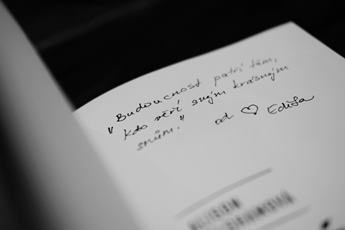 Budoucnost patří těm,
"kdo věří svým krásným
snům." od ♡ Ediša